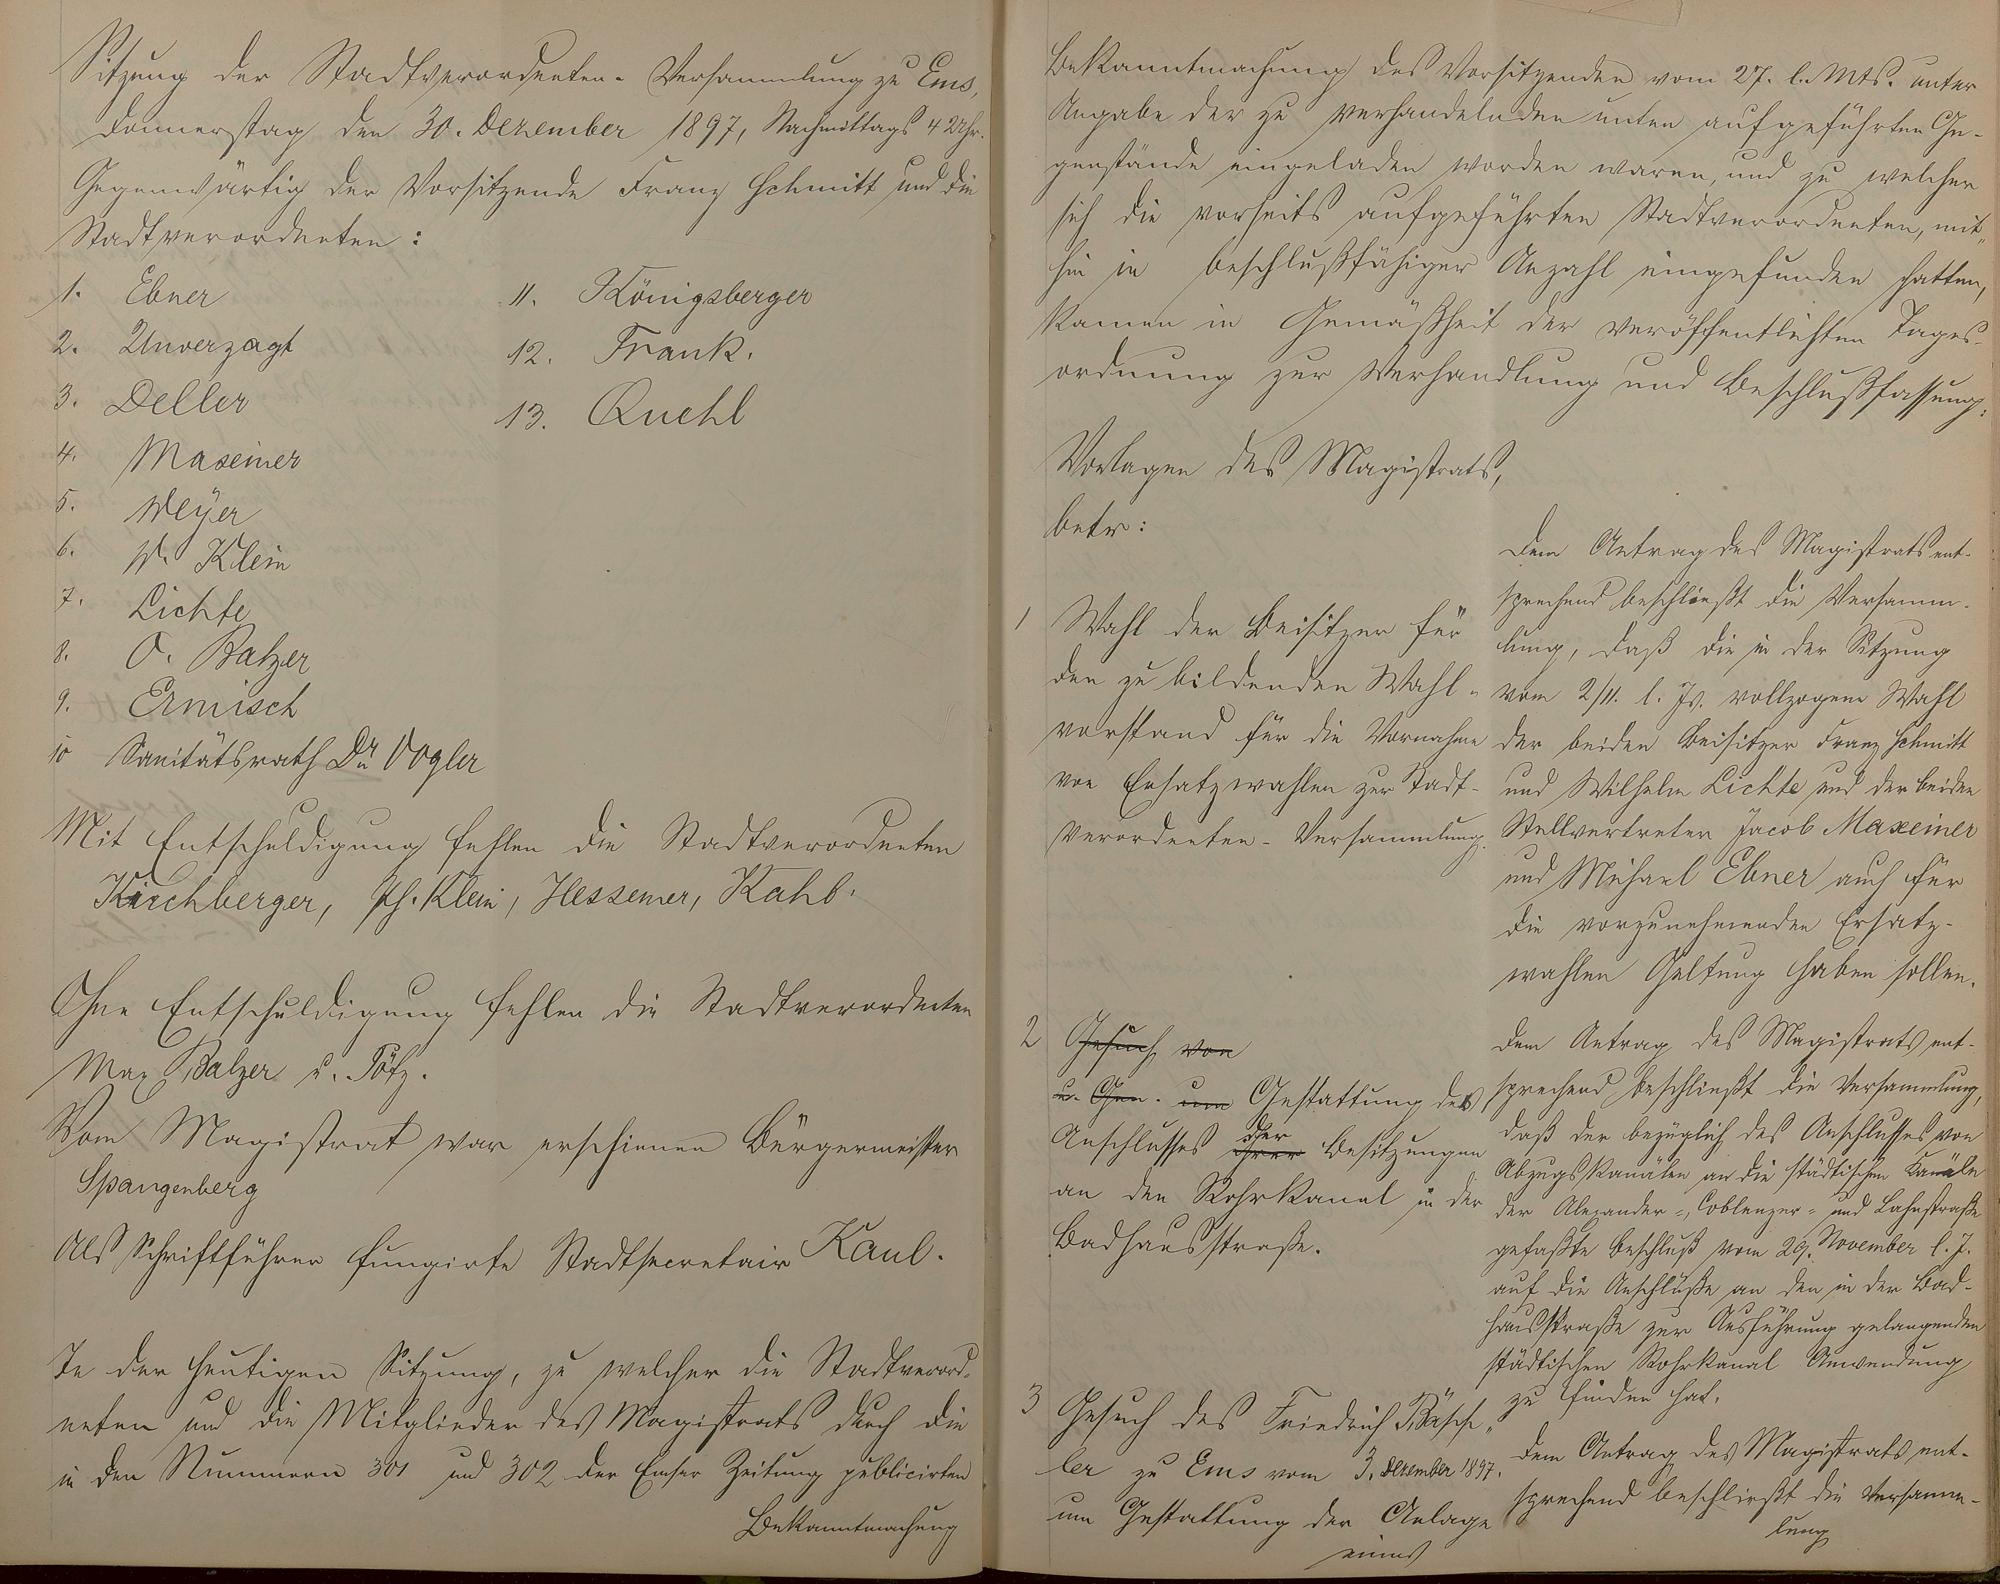 Sitzung der Stadtverordneten-Versammlung zu Ems,
Donnerstag den 30. Dezember 1897, Nachmittags 4 Uhr.
Gegenwärtig der Vorsitzende Franz Schmitt und die
Stadtverordneten:
1. Ebner
2. Unverzagt
3. Deller
4. Maxeiner
5. Meyer
6. W. Klein
7. Lichte
8. O. Balzer
9. Ermisch
10 Sanitätsrath Dr. Vogler
11. Königsberger
12. Frank.
13. Ruehl
Mit Entschuldigung fehlen die Stadtverordneten
Kirchberger, Ph. Klein, Hessemer, Kahb.
Ohne Entschuldigung fehlen die Stadtverordneten
Max Balzer u. Götz.
Vom Magistrat war erschienen Bürgermeister
Spangenberg
Als Schriftführer fungirte Stadtsecretair Kaul.
In der heutigen Sitzung, zu welcher die Stadtverord-
neten und die Mitglieder des Magistrats durch die
in den Nummern 301 und 302 der Emser Zeitung publicirten
Bekanntmachung
Bekanntmachung des Vorsitzenden vom 27. l. Mts. unter
Angabe der zu verhandelnden unten aufgeführten Ge-
genstände eingeladen worden waren, und zu welcher
sich die vorseits aufgeführten Stadtverordneten, mit-
hin in beschlußfähiger Anzahl eingefunden hatten,
kamen in Gemäßheit der veröffentlichten Tages-
ordnung zur Verhandlung und Beschlußfassung:
Vorlagen des Magistrats,
betr:
1 Wahl der Beisitzer für
den zu bildenden Wahl-
vorstand für die Vornahme
von Ersatzwahlen zur Stadt-
verordneten-Versammlung.
Dem Antrag des Magistrats ent-
sprechend beschließt die Versamm-
lung, daß die in der Sitzung
vom 2/11. l. Js. vollzogene Wahl
der beiden Beisitzer Franz Schmitt
und Wilhelm Lichte und der beiden
Stellvertreter Jacob Maxeiner
und Michael Ebner auch für
die vorzunehmenden Ersatz-
wahlen Geltung haben sollen.
2 Gesuch von
u. Gen. um Gestattung des
Anschlusses ihrer der Besitzungen
an den Rohrkanal in der
Badhausstraße.
Dem Antrag des Magistrats ent-
sprechend beschließt die Versammlung,
daß der bezüglich des Anschlusses von
Abzugskanälen an die städtischen Kanäle
der Alexander-, Coblenzer- und Lahnstraße
gefaßte Beschluß vom 29. November l. J.
auf die Anschlüße an den in der Bad-
hausstraße zur Ausführung gelangenden
städtischen Rohrkanal Anwendung
zu finden hat.
3 Gesuch des Friedrich Bäsch-
ler zu Ems vom 3. Dezember 1897.
um Gestattung der Anlage
eines
Dem Antrag des Magistrats ent-
sprechend beschließt die Versamm-
lung